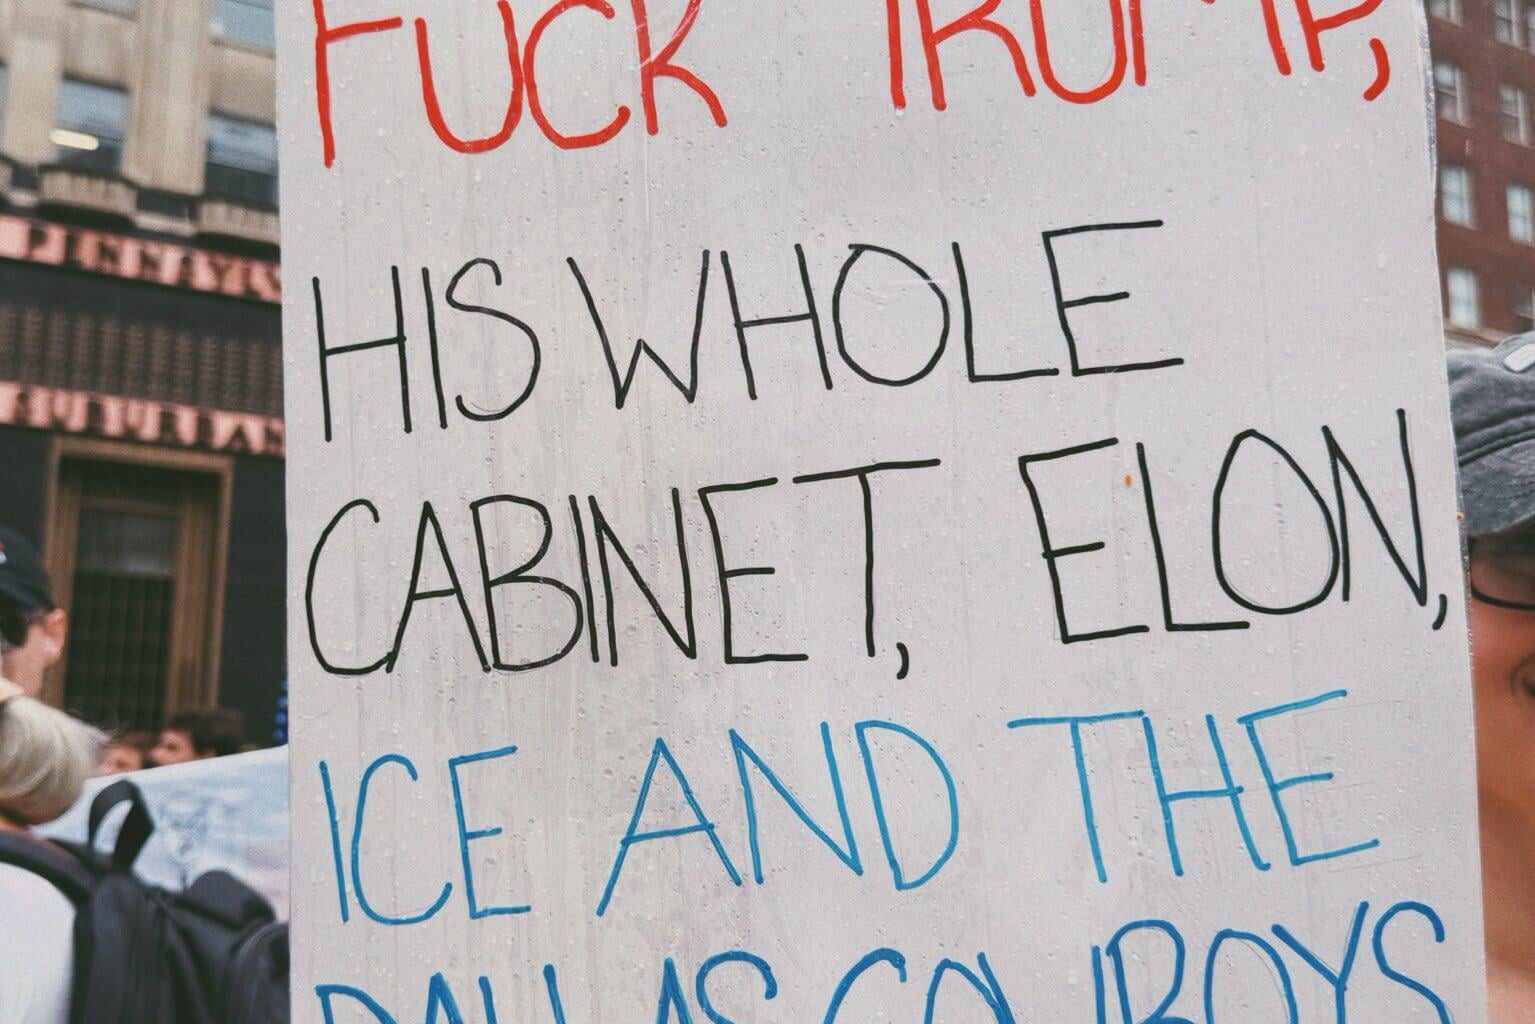 FUCK TRUMP,
HIS WHOLE
CABINET, ELON,
ICE AND THE
DALLAS COWBOYS